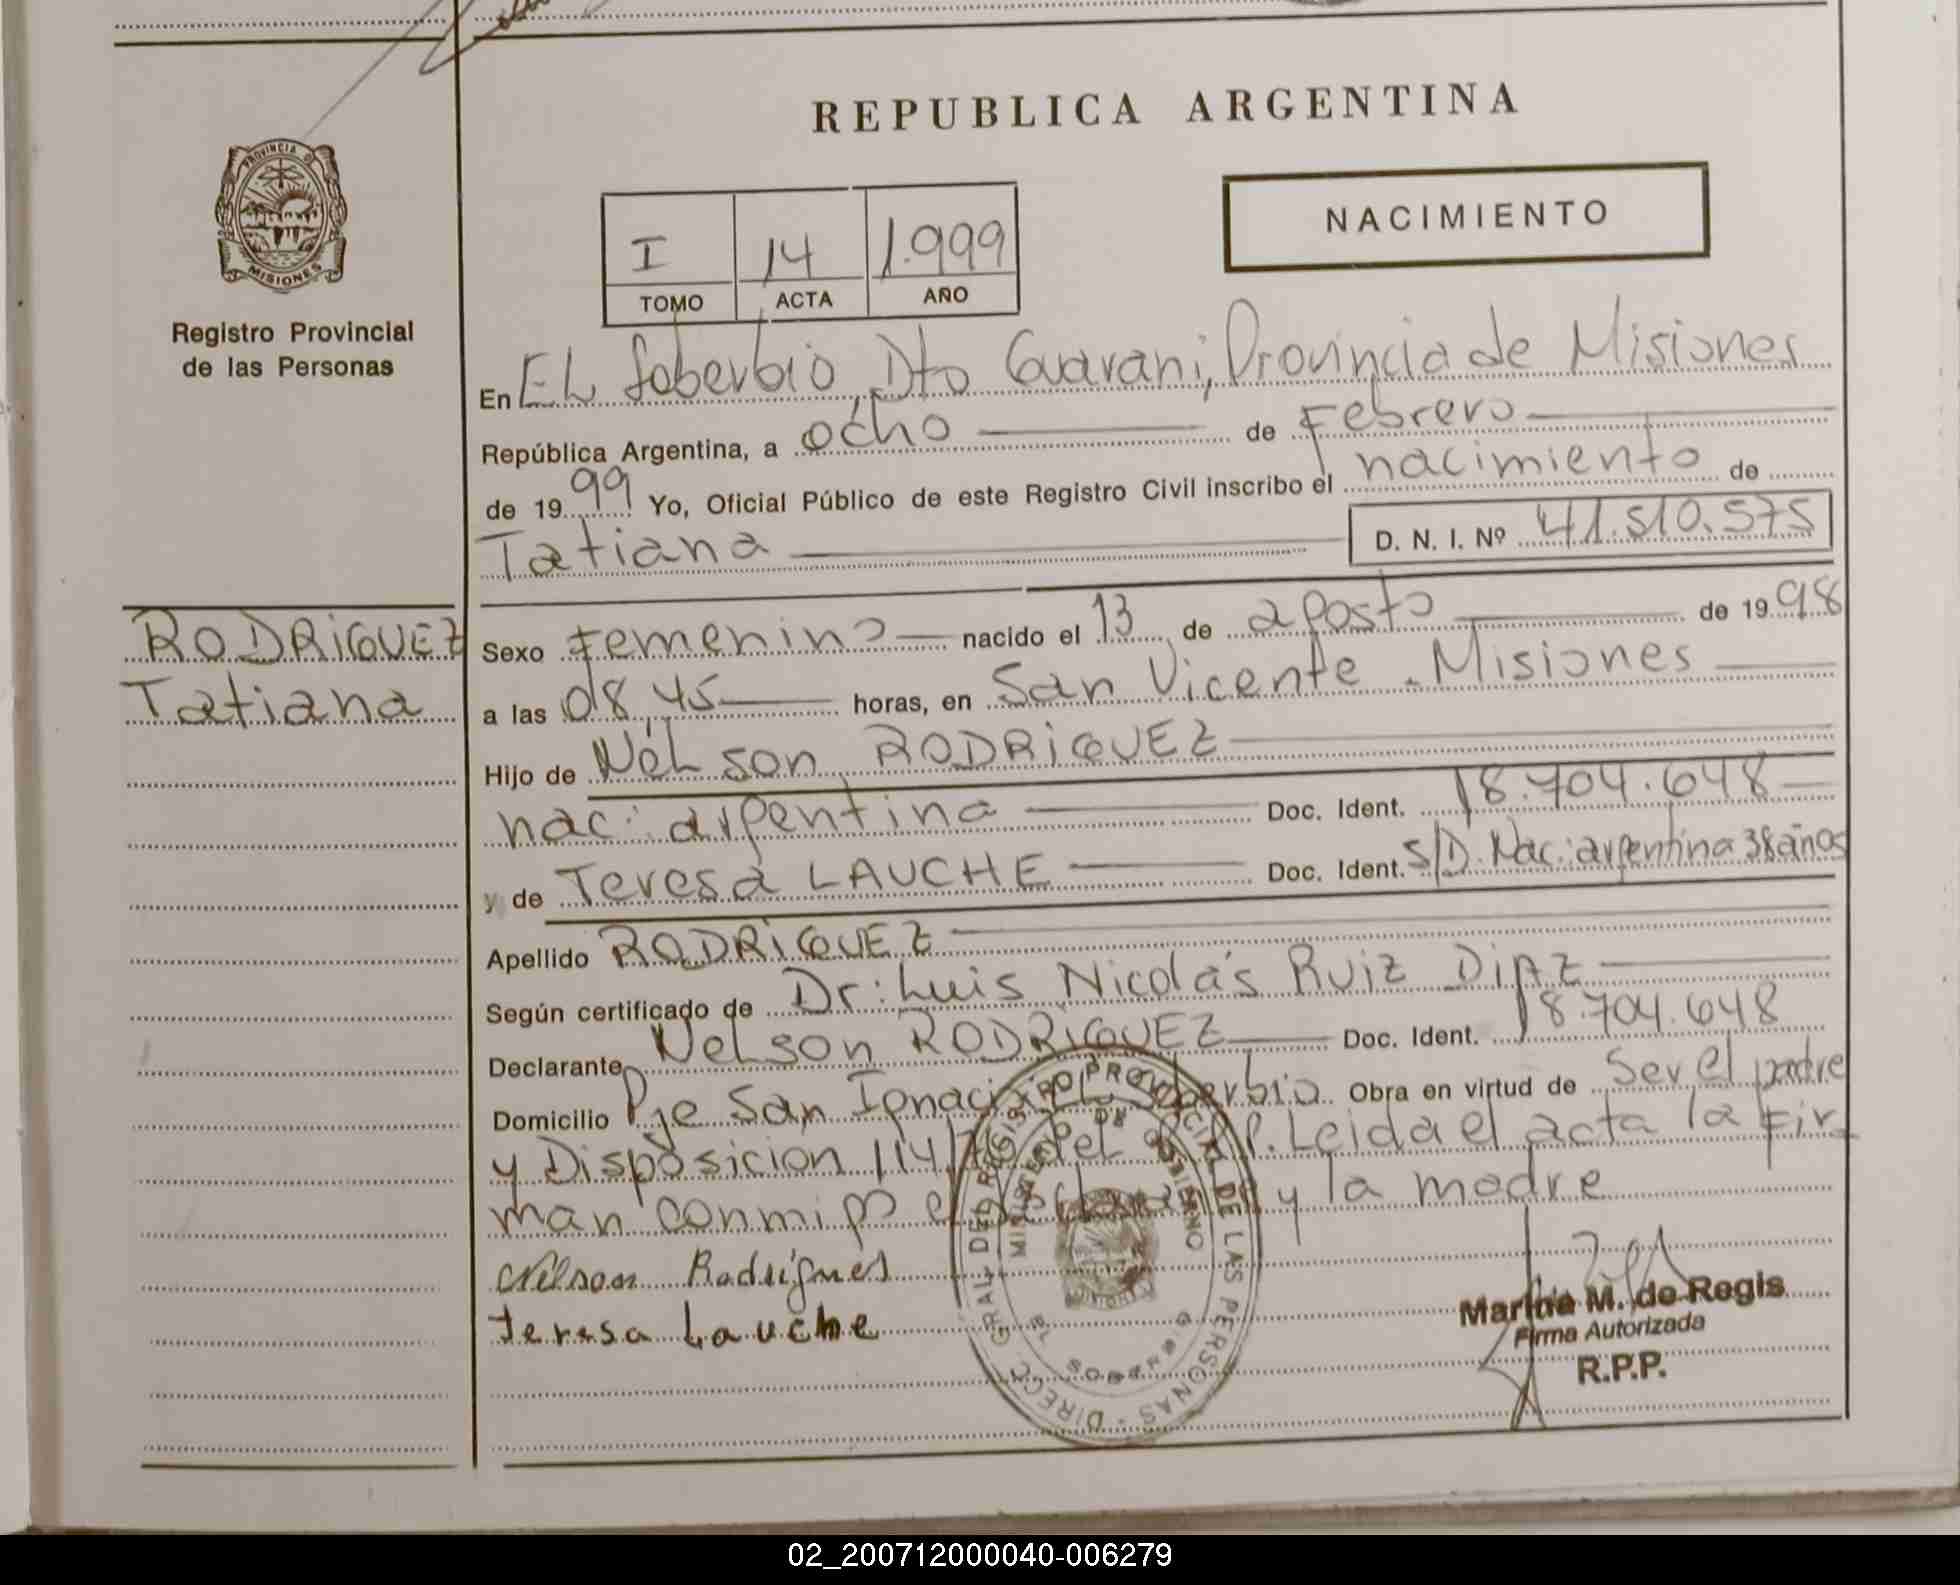 REPUBLICA ARGENTINA
PROVINCIA D
MISIONES
Registro Provincial
de las Personas
NACIMIENTO
I 14 1.999
TOMO ACTA AÑO
En EL Soberbio, Dto Guarani, Provincia de Misiones
República Argentina, a ocho de Febrero
de 1999 Yo, Oficial Público de este Registro Civil inscribo el nacimiento de
Tatiana D. N. I. Nº 41.510.575
RODRIGUEZ
Tatiana
Sexo Femenino nacido el 13 de agosto de 1998
a las 08,45 horas, en San Vicente - Misiones
Hijo de Nélson RODRIGUEZ
nac: argentina Doc. Ident. 18.704.648
y de Teresa LAUCHE Doc. Ident. S/D. Nac: argentina 38 años
Apellido RODRIGUEZ
Según certificado de Dr: Luis Nicolás Ruiz DIAZ
Declarante Nelson RODRIGUEZ Doc. Ident. 18.704.648
Domicilio Pje San Ignacio, EL Soberbio Obra en virtud de Ser el padre
y Disposicion 114/ del P. Leida el acta la fir
man conmigo el y la madre
Nelson Rodrigues
teresa Lauche
DIRECC. GRAL. DEL REGISTRO PROVINCIAL DE LAS PERSONAS -
MINISTERIO DE GOBIERNO
MISIONES
EL SOBERBIO
Marina M. de Regis
Firma Autorizada
R.P.P.
02_200712000040-006279